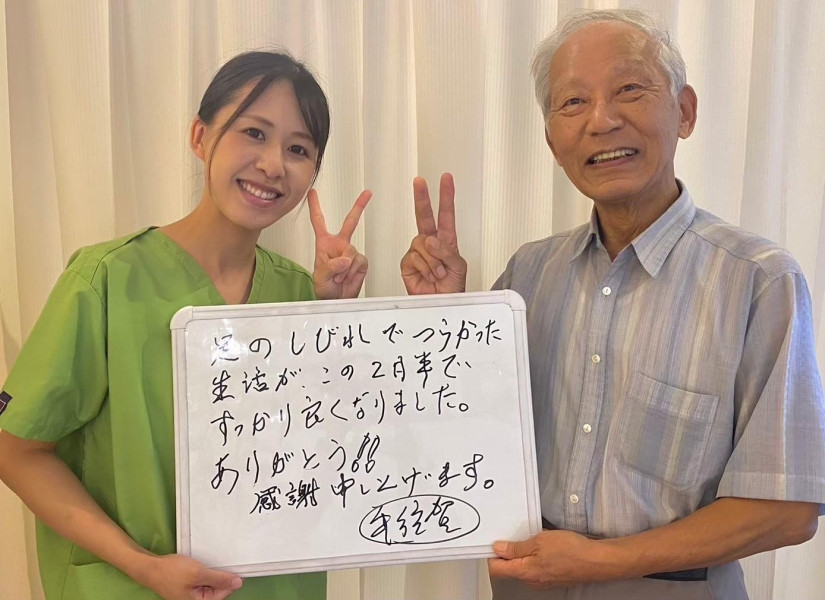 足のしびれでつらかった
生活が、この2月半で
すっかり良くなりました。
ありがとう!!
感謝申し上げます。